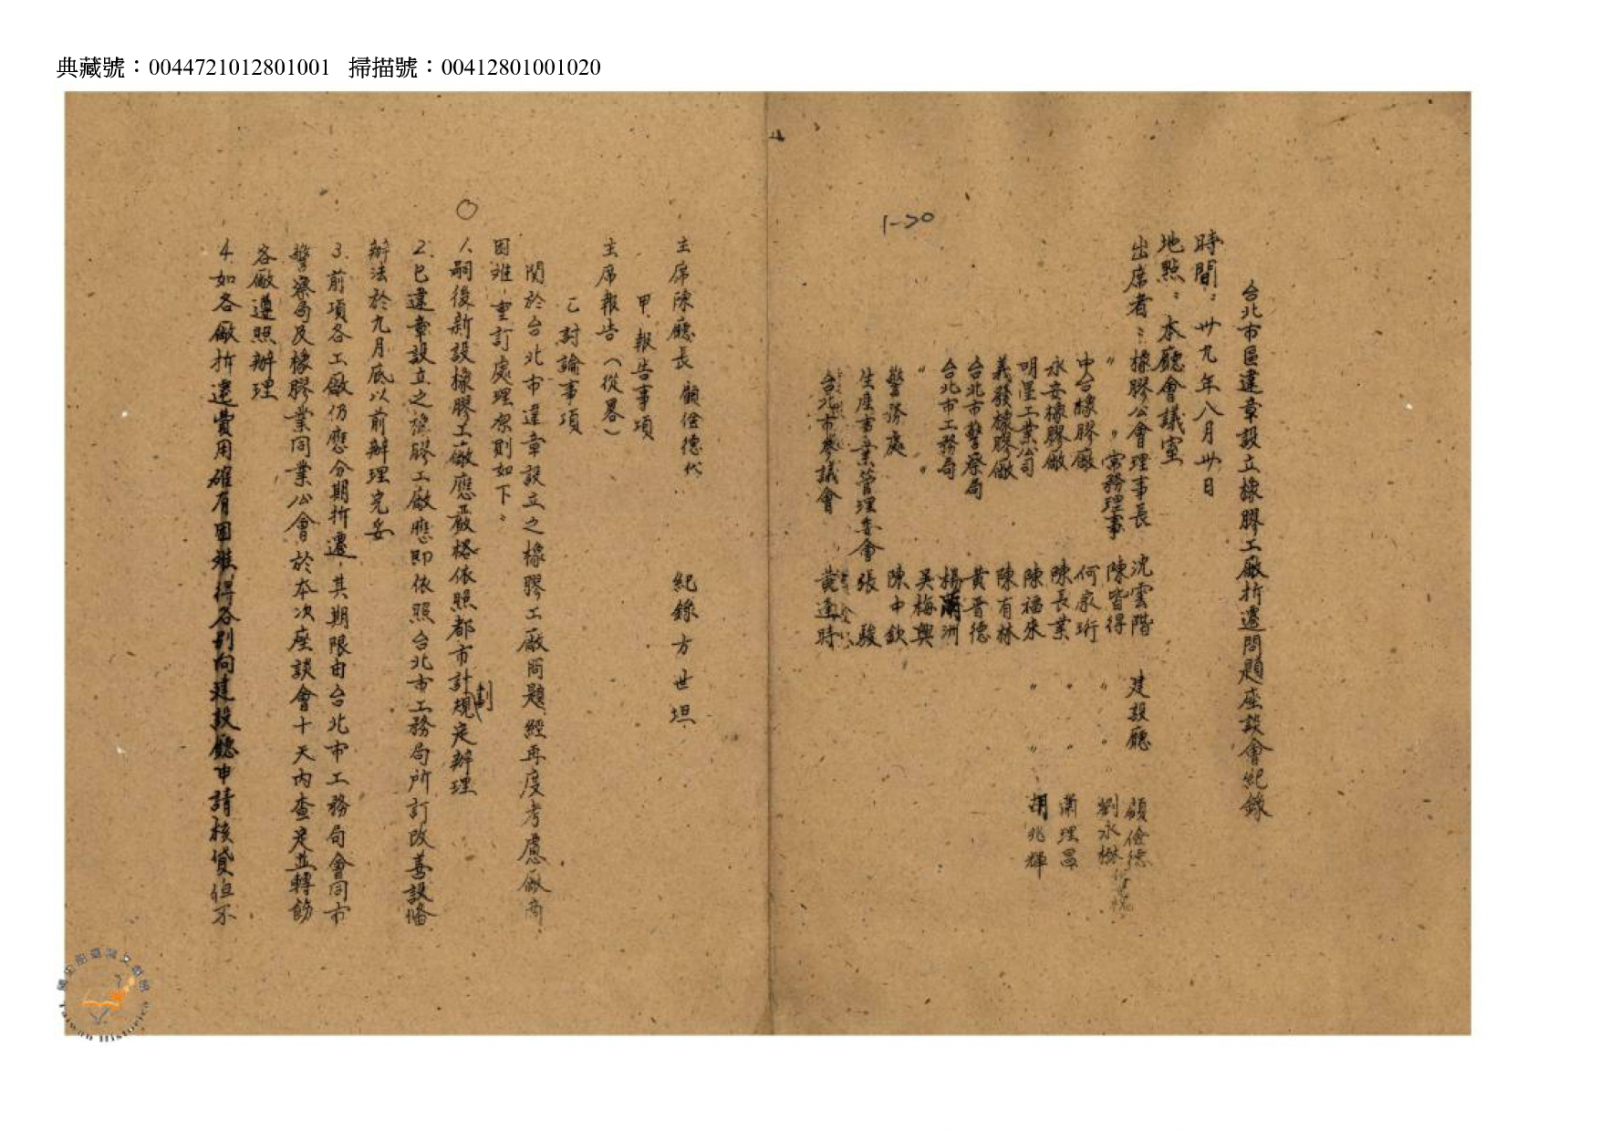 典藏號：0044721012801001 掃描號：00412801001020
台北市區違章設立橡膠工廠折遷問題座談會紀錄
時間：卅九年八月卅日
地點：本廳會議室
出席者：橡膠公會理事長 沈雲階 建設廳 顧儉德
〃 〃 常務理事 陳皆得 〃 〃 劉永楙
中台橡膠廠 何家珩
永安橡膠廠 陳長業 〃 〃 蕭理昌
明星工業公司 陳福來 〃 〃 胡兆輝
義發橡膠廠 陳有林
台北市警察局 黃晋德
台北市工務局 楊蘭洲
〃 〃 吳梅興
警務處 陳中欽
生產事業管理委會 張駿
台北市參議會 黃逢時
1-20
主席陳廳長 顧儉德代 紀錄方世坦
甲、報告事項
主席報告（從畧）
乙討論事項
関於台北市違章設立之橡膠工廠问題經再度考慮廠商
困难重訂處理原則如下：
1.嗣後新設橡膠工廠應嚴格依照都市計劃規定辦理
2.已違章設立之橡膠工廠應即依照台北市工務局所訂改善設備
辦法於九月底以前辦理完妥
3.前項各工廠仍應分期折遷，其期限由台北市工務局會同市
警察局及橡膠業同業公會於本次座談會十天內查定並轉飭
各廠遵照辦理
4.如各廠折遷費用確有困难得各別向建設廳申請核貸但不